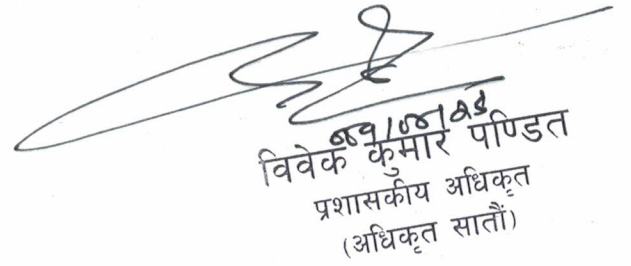 विवेक कुमार पण्डित
प्रशासकीय अधिकृत
(अधिकृत सातौं)